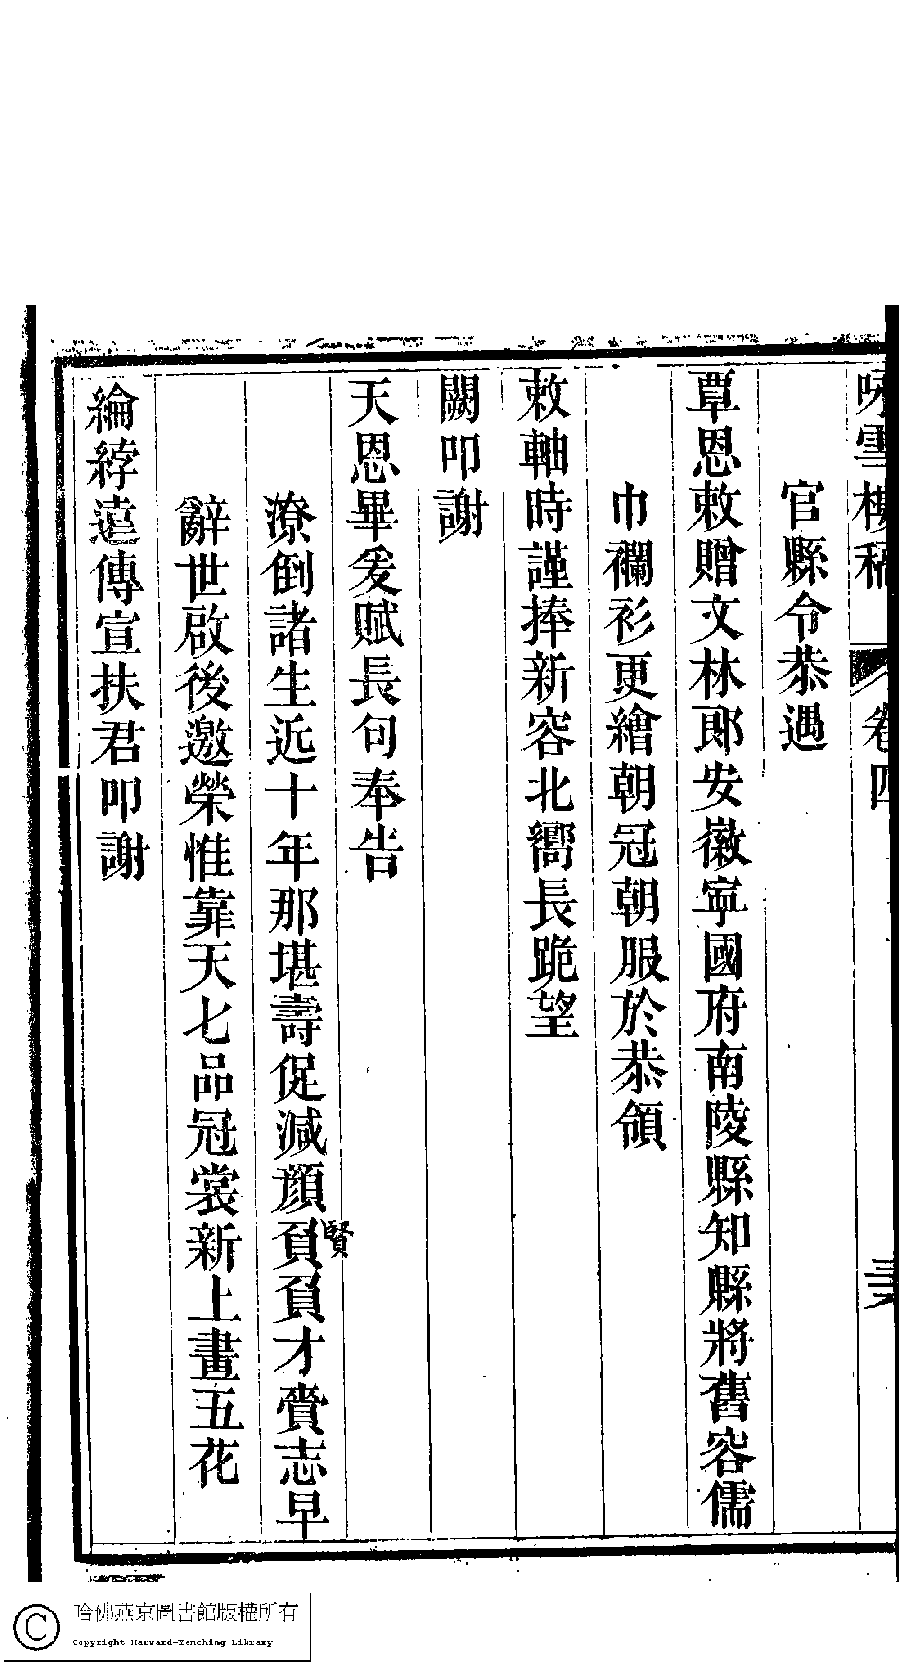 咏雪樓稿 卷四
官縣令恭遇
覃恩敕贈文林郎安徽寧國府南陵縣知縣將舊容儒
巾襴衫更繪朝冠朝服於恭領
敕軸時謹捧新容北嚮長跪望
闕叩謝
天恩畢爰賦長句奉告
潦倒諸生近十年那堪壽促減顏負負才賫志早
賢
辭世啟後邀榮惟靠天七品冠裳新上畫五花
綸綍遠傳宣扶君叩謝
哈佛燕京圖書館版權所有
Copyright Harvard-Yenching Library